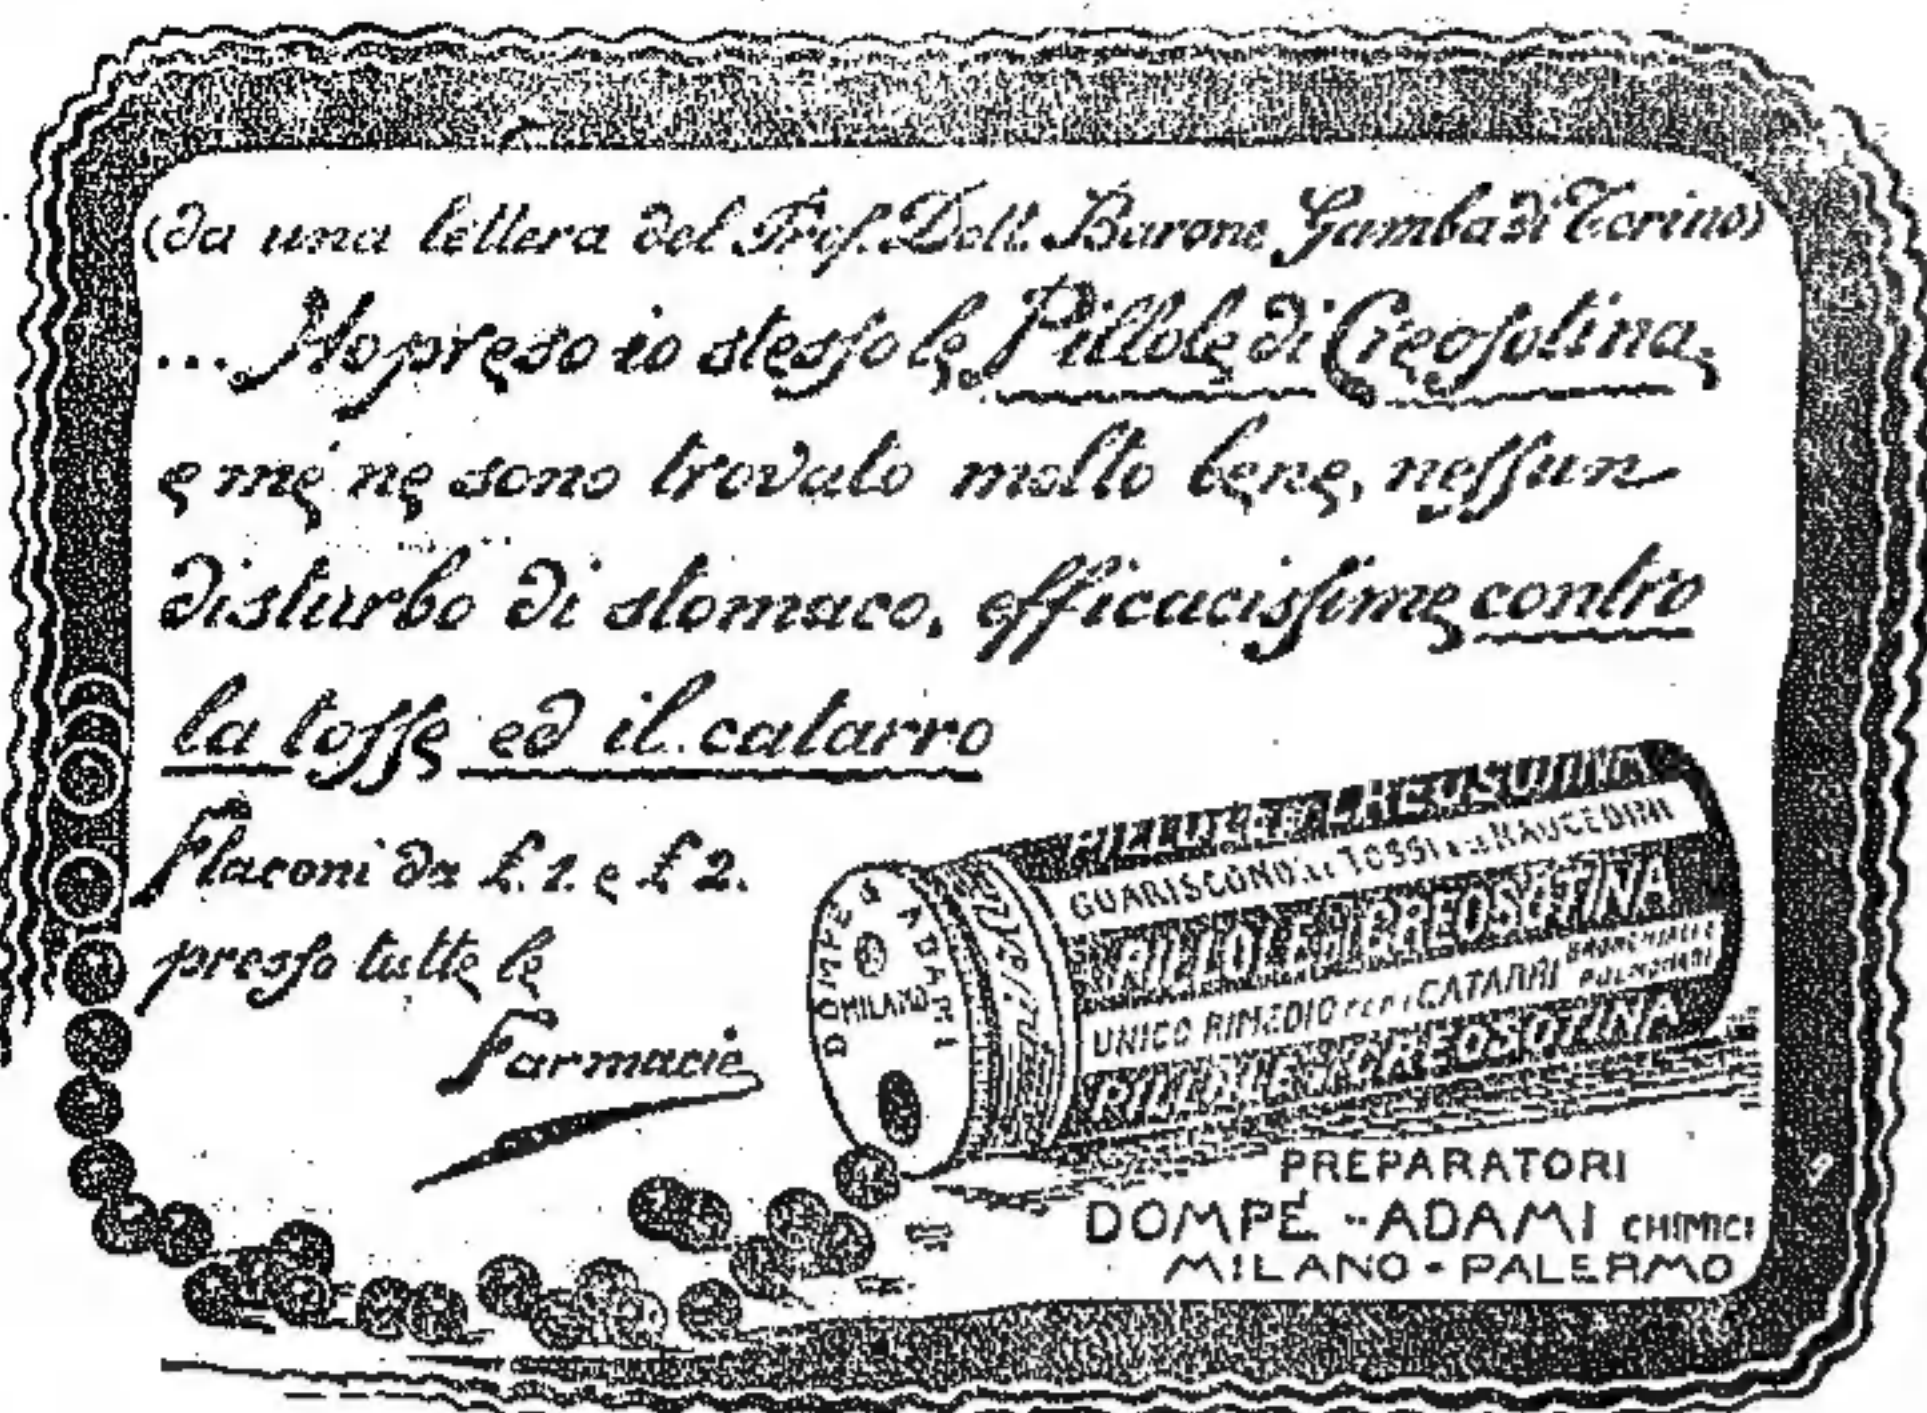 (da una lettera del Prof. Dott. Barone Gamba di Torino)
... Ho preso io stesso le Pillole di Creosotina,
e me ne sono trovato molto bene, nessun
disturbo di stomaco, efficacissime contro
la tosse ed il catarro
Flaconi da £. 1. e £ 2.
presso tutte le
Farmacie
DOMPÉ & ADAMI
MILANO
PILLOLE DI CREOSOTINA
GUARISCONO LE TOSSI E LE RAUCEDINI
PILLOLE DI CREOSOTINA
UNICO RIMEDIO PER I CATARRI BRONCHIALI E PULMONARI
PILLOLE DI CREOSOTINA
PREPARATORI
DOMPÉ - ADAMI CHIMICI
MILANO - PALERMO